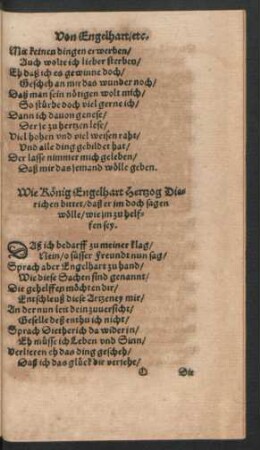 Von Engelhart/etc.
Mit keinen dingen erwerben/
Auch wolte ich lieber sterben/
Eh daß ich es gewinne doch/
Gescheh an mir das wunder noch/
Daß man sein nötigen wolt mich/
So stürbe doch viel gerne ich/
Dann ich dauon genese/
Der je zu hertzen lese/
Viel hohen vnd viel weisen raht/
Vnd alle ding gebildet hat/
Der lasse nimmer mich geleben/
Daß mir das jemand wölle geben.
Wie König Engelhart Hertzog Die-
richen bittet/daß er im doch sagen
wölle/wie jm zu helf-
fen sey.
DAß ich bedarff zu meiner klag/
Nein/o süsser Freundt nun sag/
Sprach aber Engelhart zu hand/
Wie diese Sachen sind genannt/
Die gehelffen möchten dir/
Entschleuß diese Artzeney mir/
An der nun leit dein zuuersicht/
Geselle deß enthu ich nicht/
Sprach Dietherich da wider in/
Eh müsse ich Leben vnd Sinn/
Verlieren eh das ding gescheh/
Daß ich das glück dir verjehe/
Die